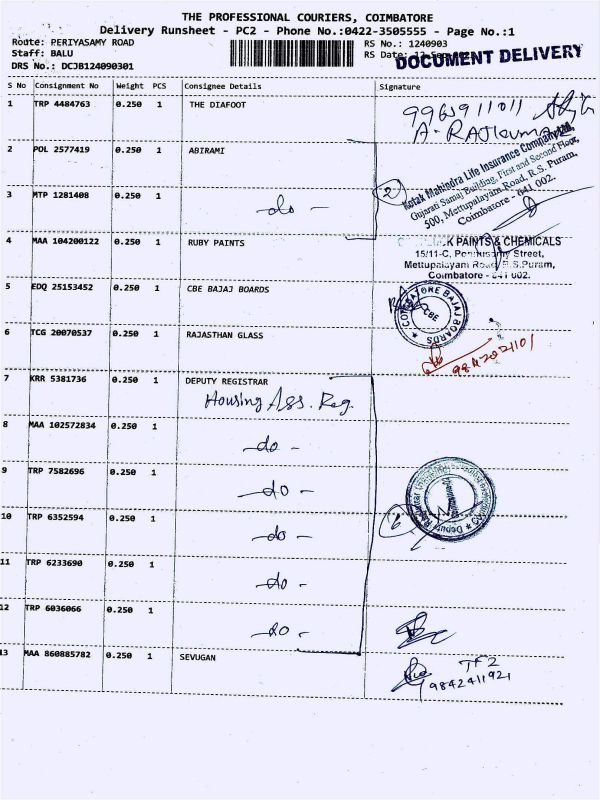 THE PROFESSIONAL COURIERS, COIMBATORE
Delivery Runsheet - PC2 - Phone No.:0422-3505555 - Page No.:1
Route: PERIYASAMY ROAD RS No.: 1240903
Staff: BALU RS Date:
DRS No.: DCJB124090301 DOCUMENT DELIVERY
S No Consignment No Weight PCS Consignee Details Signature
1 TRP 4484763 0.250 1 THE DIAFOOT
A. RAJKUMAR
2 POL 2577419 0.250 1 ABIRAMI
Kotak Mahindra Life Insurance Company Ltd,
Gujarati Samaj Building, First and Second Floor,
500, Mettupalayam Road, R.S. Puram,
Coimbatore - 641 002.
2
3 MTP 1281408 0.250 1 -do-
4 MAA 104200122 0.250 1 RUBY PAINTS
PAINTS & CHEMICALS
15/11-C, Ponnusamy Street,
Mettupalayam Road, R.S.Puram,
Coimbatore - 641 002.
5 EDQ 25153452 0.250 1 CBE BAJAJ BOARDS
COIMBATORE BAJAJ BOARDS
CBE
6 TCG 20070537 0.250 1 RAJASTHAN GLASS
7 KRR 5381736 0.250 1 DEPUTY REGISTRAR
Housing Ass. Reg.
8 MAA 102572834 0.250 1 -do-
9 TRP 7582696 0.250 1 -do-
Deputy Registrar
6
10 TRP 6352594 0.250 1 -do-
11 TRP 6233690 0.250 1 -do-
12 TRP 6036066 0.250 1 -do-
13 MAA 860885782 0.250 1 SEVUGAN
9842411921